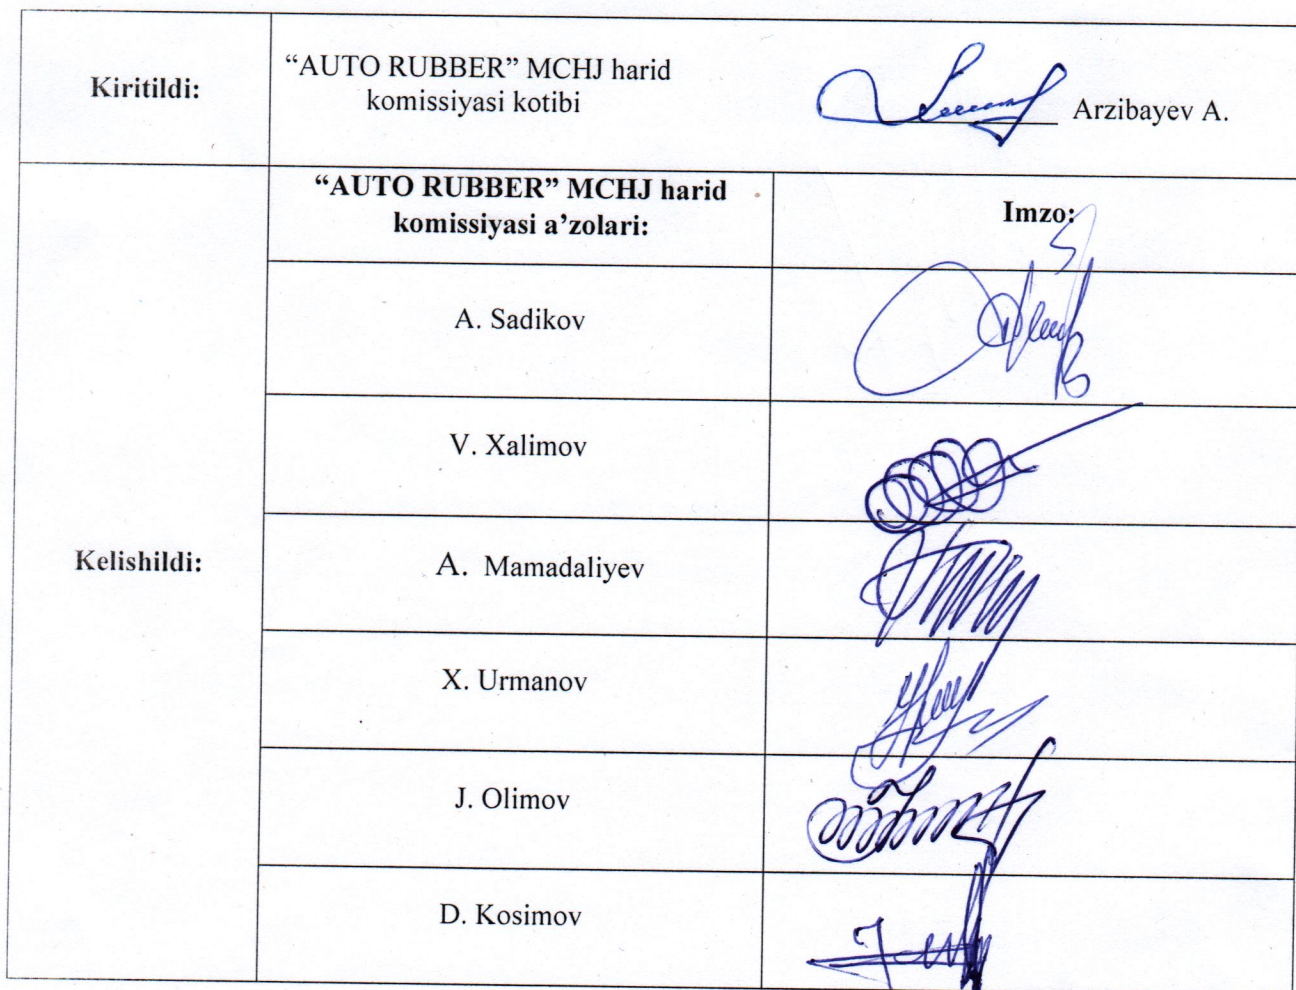 Kiritildi:
“AUTO RUBBER” MCHJ harid
komissiyasi kotibi
Arzibayev A.
“AUTO RUBBER” MCHJ harid
komissiyasi a’zolari:
Imzo:
Kelishildi:
A. Sadikov
V. Xalimov
A. Mamadaliyev
X. Urmanov
J. Olimov
D. Kosimov